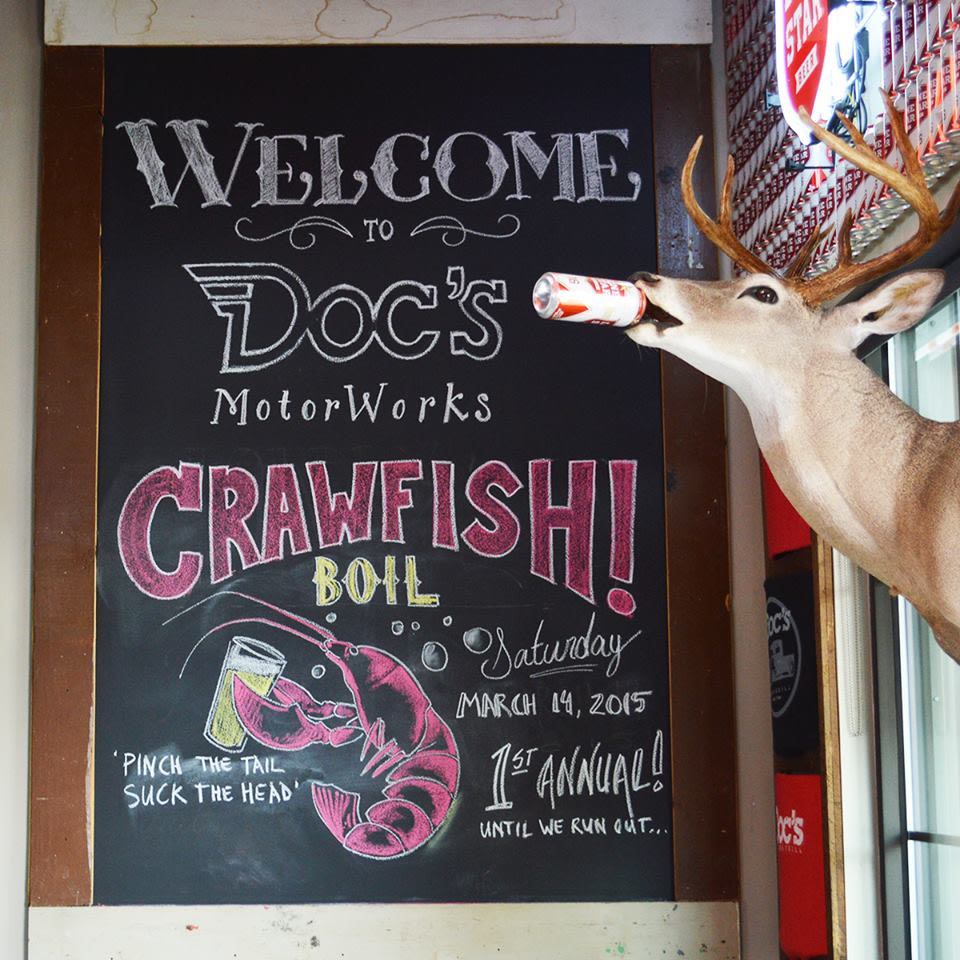 WELCOME
TO
DOC'S
MotorWorks
CRAWFISH!
BOIL
Saturday
MARCH 14, 2015
1ST ANNUAL!
UNTIL WE RUN OUT...
'PINCH THE TAIL
SUCK THE HEAD'
STAR
BEER
DOC'S